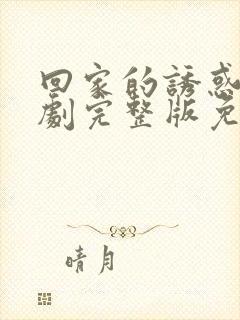 回家的誘惑
劇完整版免
晴月